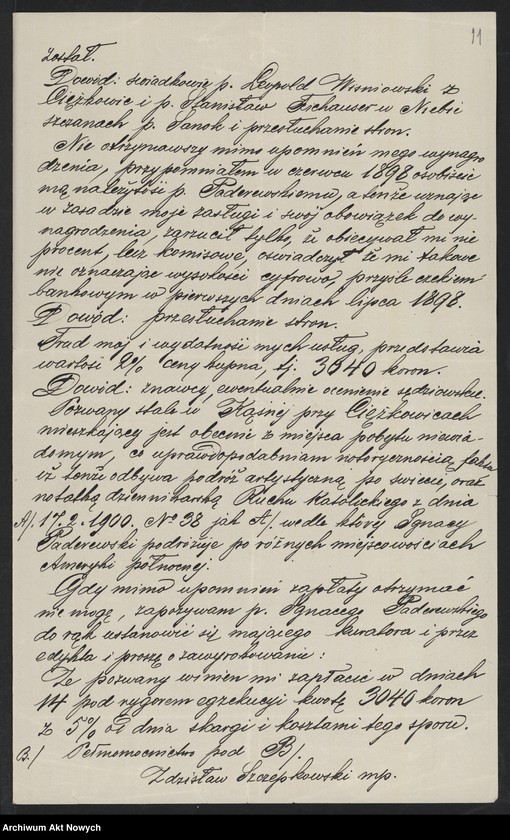 11
został.
Dowód: świadkowie p. Leopold Wiśniowski z
Ciężkowic i p. Stanisław w Niebie
szczanach p. Sanok i przesłuchanie stron.
Nie otrzymawszy mimo upomnień mego wynagro
dzenia, przypomniałem w czerwcu 1898 osobiście
mą należytość p. Paderewskiemu, a tenże uznając
w zasadzie moje zasługi i swój obowiązek do wy-
nagrodzenia, zarzucił tylko, iż obiecywał mi nie
procent, lecz komisowe, oświadczył że mi takowe
nie oznaczając wysokości cyfrowo, przyśle czekiem
bankowym w pierwszych dniach lipca 1898.
Dowód: przesłuchanie stron.
Trud mój i wydatność mych usług, przedstawia
wartość 2% ceny kupna, tj. 3040 koron.
Dowód: znawcy, ewentualnie ocenienie sędziowskie.
Pozwany stale w Kąśnej przy Ciężkowicach
mieszkający jest obecnie z miejsca pobytu niewia-
domym, co uprawdopodabniam notorycznością faktu
iż tenże odbywa podróż artystyczną po świecie, oraz
notatką dziennikarską Ruchu katolickiego z dnia
A/. 17.2.1900. № 38 jak A/. wedle której Ignacy
Paderewski podróżuje po różnych miejscowościach
Ameryki północnej.
Gdy mimo upomnień zapłaty otrzymać
nie mogę, zapozywam p. Ignacego Paderewskiego
do rąk ustanowić się mającego kuratora i przez
edykta i proszę o zawyrokowanie:
Że pozwany winien mi zapłacić w dniach
14 pod rygorem egzekucyi kwotę 3040 koron
z 5% od dnia skargi i kosztami tego sporu.
B./ Pełnomocnictwo pod B/.
Zdzisław Szczepkowski mp.
Archiwum Akt Nowych